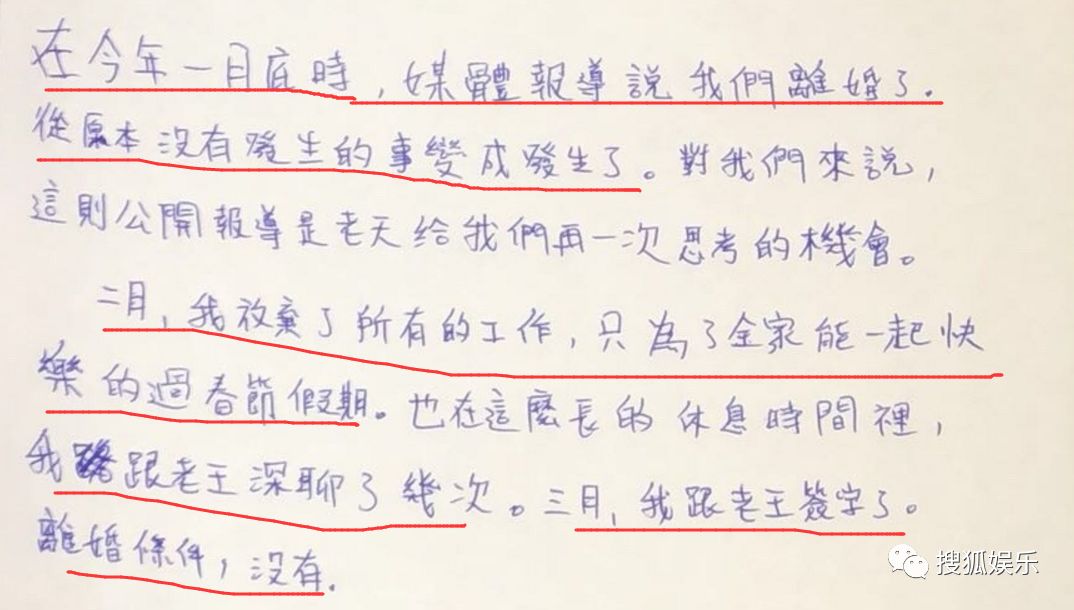 在今年一月底時，媒體報導說我們離婚了.
從原本沒有發生的事變成發生了。對我們來說，
這則公開報導是老天給我們再一次思考的機會。
二月，我放棄了所有的工作，只為了全家能一起快
樂的過春節假期。也在這麼長的休息時間裡，
我跟老王深聊了幾次。三月，我跟老王簽字了。
離婚條件，沒有.
搜狐娱乐